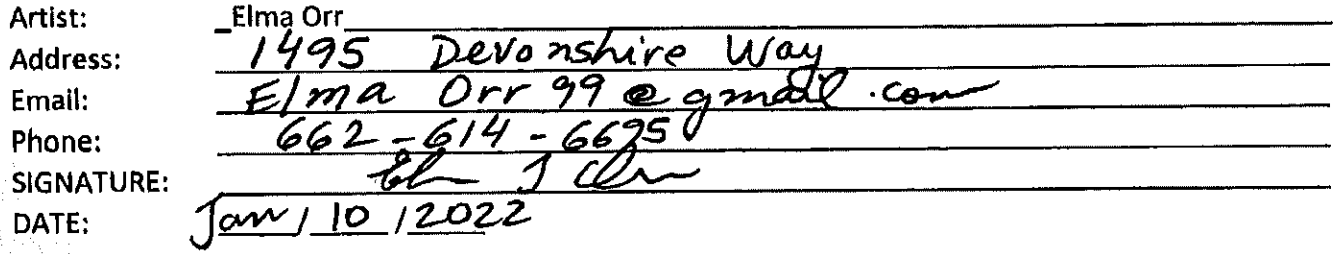 Artist: Elma Orr
Address: 1495 Devonshire Way
Email: Elma Orr 99 @ gmail.com
Phone: 662-614-6695
SIGNATURE:
DATE: Jan / 10 / 2022